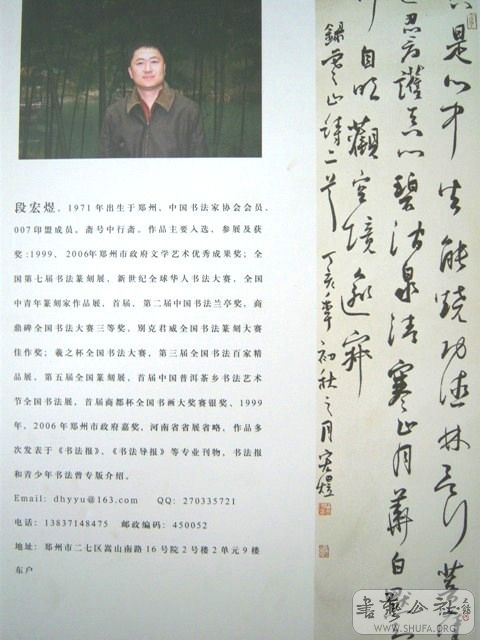 段宏煜，1971年出生于郑州、中国书法家协会会员，
007印盟成员，斋号中行斋。作品主要入选，参展及获
奖:1999、2006年郑州市政府文学艺术优秀成果奖；全
国第七届书法篆刻展，新世纪全球华人书法大赛，全国
中青年篆刻家作品展，首届、第二届中国书法兰亭奖，商
鼎碑全国书法大赛三等奖，别克君威全国书法篆刻大赛
佳作奖；羲之杯全国书法大赛，第三届全国书法百家精
品展，第五届全国篆刻展，首届中国普洱茶乡书法艺术
节全国书法展，首届商都杯全国书画大奖赛银奖、1999
年，2006年郑州市政府嘉奖，河南省省展省略，作品多
次发表于《书法报》、《书法导报》等专业刊物，书法报
和青少年书法曾专版介绍。
Email: dhyyu@163.com QQ: 270335721
电话：13837148475 邮政编码：450052
地址：郑州市二七区嵩山南路16号院2号楼2单元9楼
东户
是心中 生能饶功德林
碧沼泉清寒山月华白
自明观空境逾寂
录寒山诗二首 丁亥年初秋之月宏煜
书艺公社
WWW.SHUFA.ORG